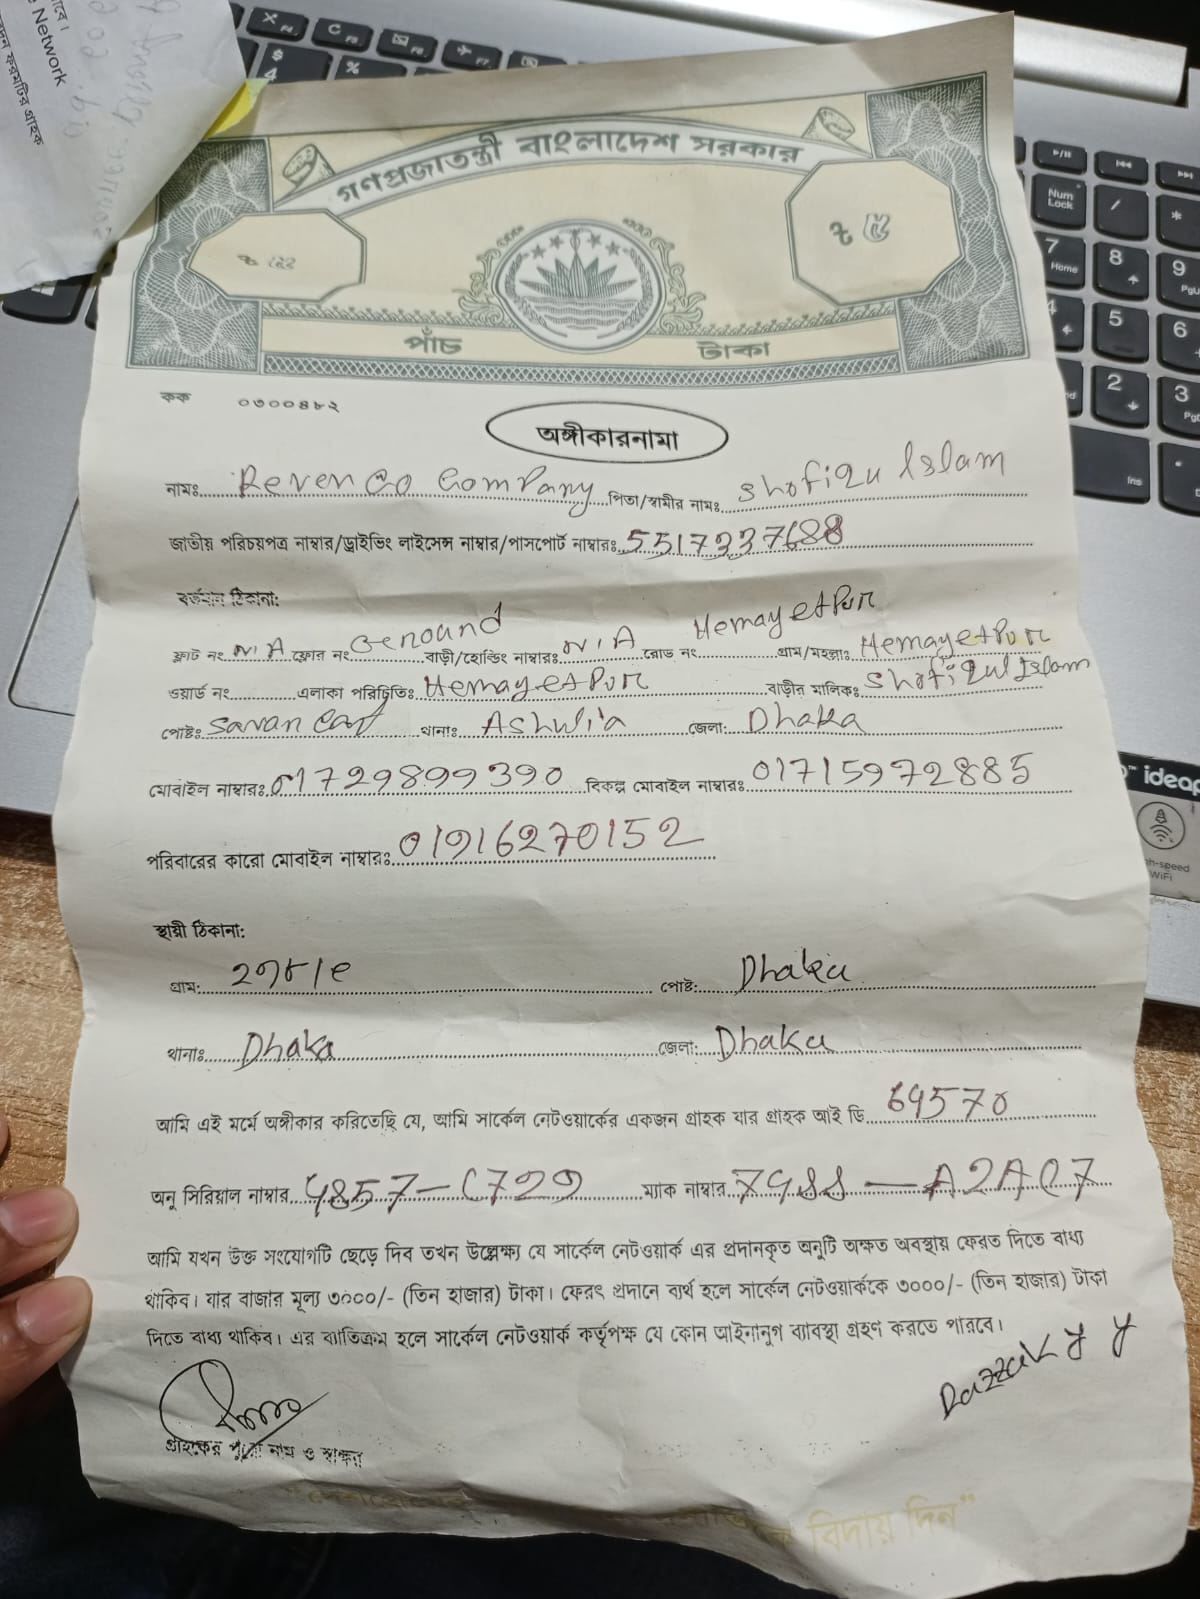 Network
গণপ্রজাতন্ত্রী বাংলাদেশ সরকার
৳ ৫
পাঁচ টাকা
কক ০৩০০৪৮২
অঙ্গীকারনামা
নামঃ Reven Go Company পিতা/স্বামীর নামঃ Shofiqu Islam
জাতীয় পরিচয়পত্র নাম্বার/ড্রাইভিং লাইসেন্স নাম্বার/পাসপোর্ট নাম্বারঃ 5517337688
বর্তমান ঠিকানা:
ফ্লাট নং N/A ফ্লোর নং Geround বাড়ী/হোল্ডিং নাম্বারঃ N/A রোড নং Hemayetpur গ্রাম/মহল্লাঃ Hemayetpur
ওয়ার্ড নং এলাকা পরিচিতিঃ Hemayetpur বাড়ীর মালিকঃ Shofiqul Islam
পোষ্টঃ Savan থানাঃ Ashulia জেলা: Dhaka
মোবাইল নাম্বারঃ 01729899390 বিকল্প মোবাইল নাম্বারঃ 01715972885
পরিবারের কারো মোবাইল নাম্বারঃ 01916270152
স্থায়ী ঠিকানা:
গ্রাম: পোষ্ট: Dhaka
থানাঃ Dhaka জেলা: Dhaka
আমি এই মর্মে অঙ্গীকার করিতেছি যে, আমি সার্কেল নেটওয়ার্কের একজন গ্রাহক যার গ্রাহক আই ডি 69570
অনু সিরিয়াল নাম্বার 4857-C729 ম্যাক নাম্বার
আমি যখন উক্ত সংযোগটি ছেড়ে দিব তখন উল্লেক্ষ্য যে সার্কেল নেটওয়ার্ক এর প্রদানকৃত অনুটি অক্ষত অবস্থায় ফেরত দিতে বাধ্য
থাকিব। যার বাজার মূল্য ৩০০০/- (তিন হাজার) টাকা। ফেরৎ প্রদানে ব্যর্থ হলে সার্কেল নেটওয়ার্ককে ৩০০০/- (তিন হাজার) টাকা
দিতে বাধ্য থাকিব। এর ব্যাতিক্রম হলে সার্কেল নেটওয়ার্ক কর্তৃপক্ষ যে কোন আইনানুগ ব্যাবস্থা গ্রহণ করতে পারবে।
Razzak
গ্রাহকের পুরো নাম ও স্বাক্ষর
বিদায় দিন"